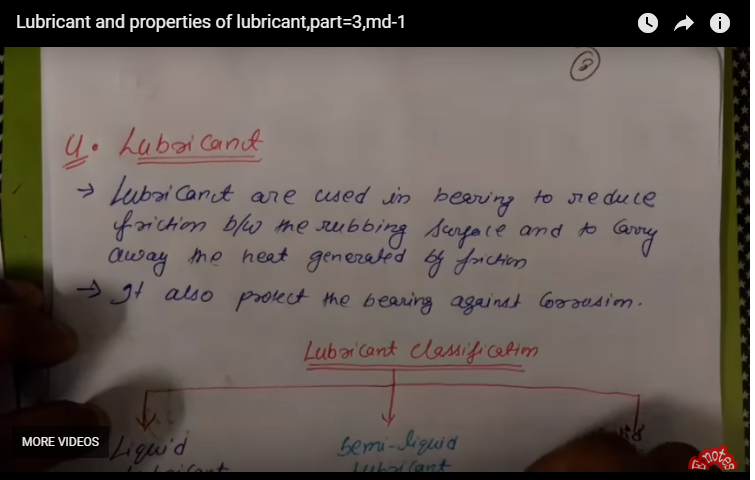 Lubricant and properties of lubricant,part=3,md-1
3
4. Lubricant
→ Lubricant are used in bearing to reduce
friction b/w the rubbing surface and to carry
away the heat generated by friction
→ It also protect the bearing against Corrosion.
Lubricant Classification
Liquid
Semi-liquid
Lubricant
MORE VIDEOS
notes